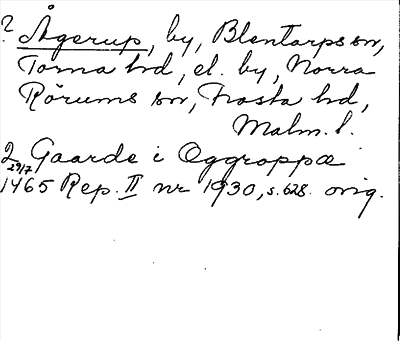 ? Ågerup, by, Blentarps sn,
Torna hd, el. by, Norra
Rörums sn, Frosta hd,
Malm. l.
2 Gaarde i Oggroppæ
29/7
1465 Rep. II nr 1930, s. 628. orig.